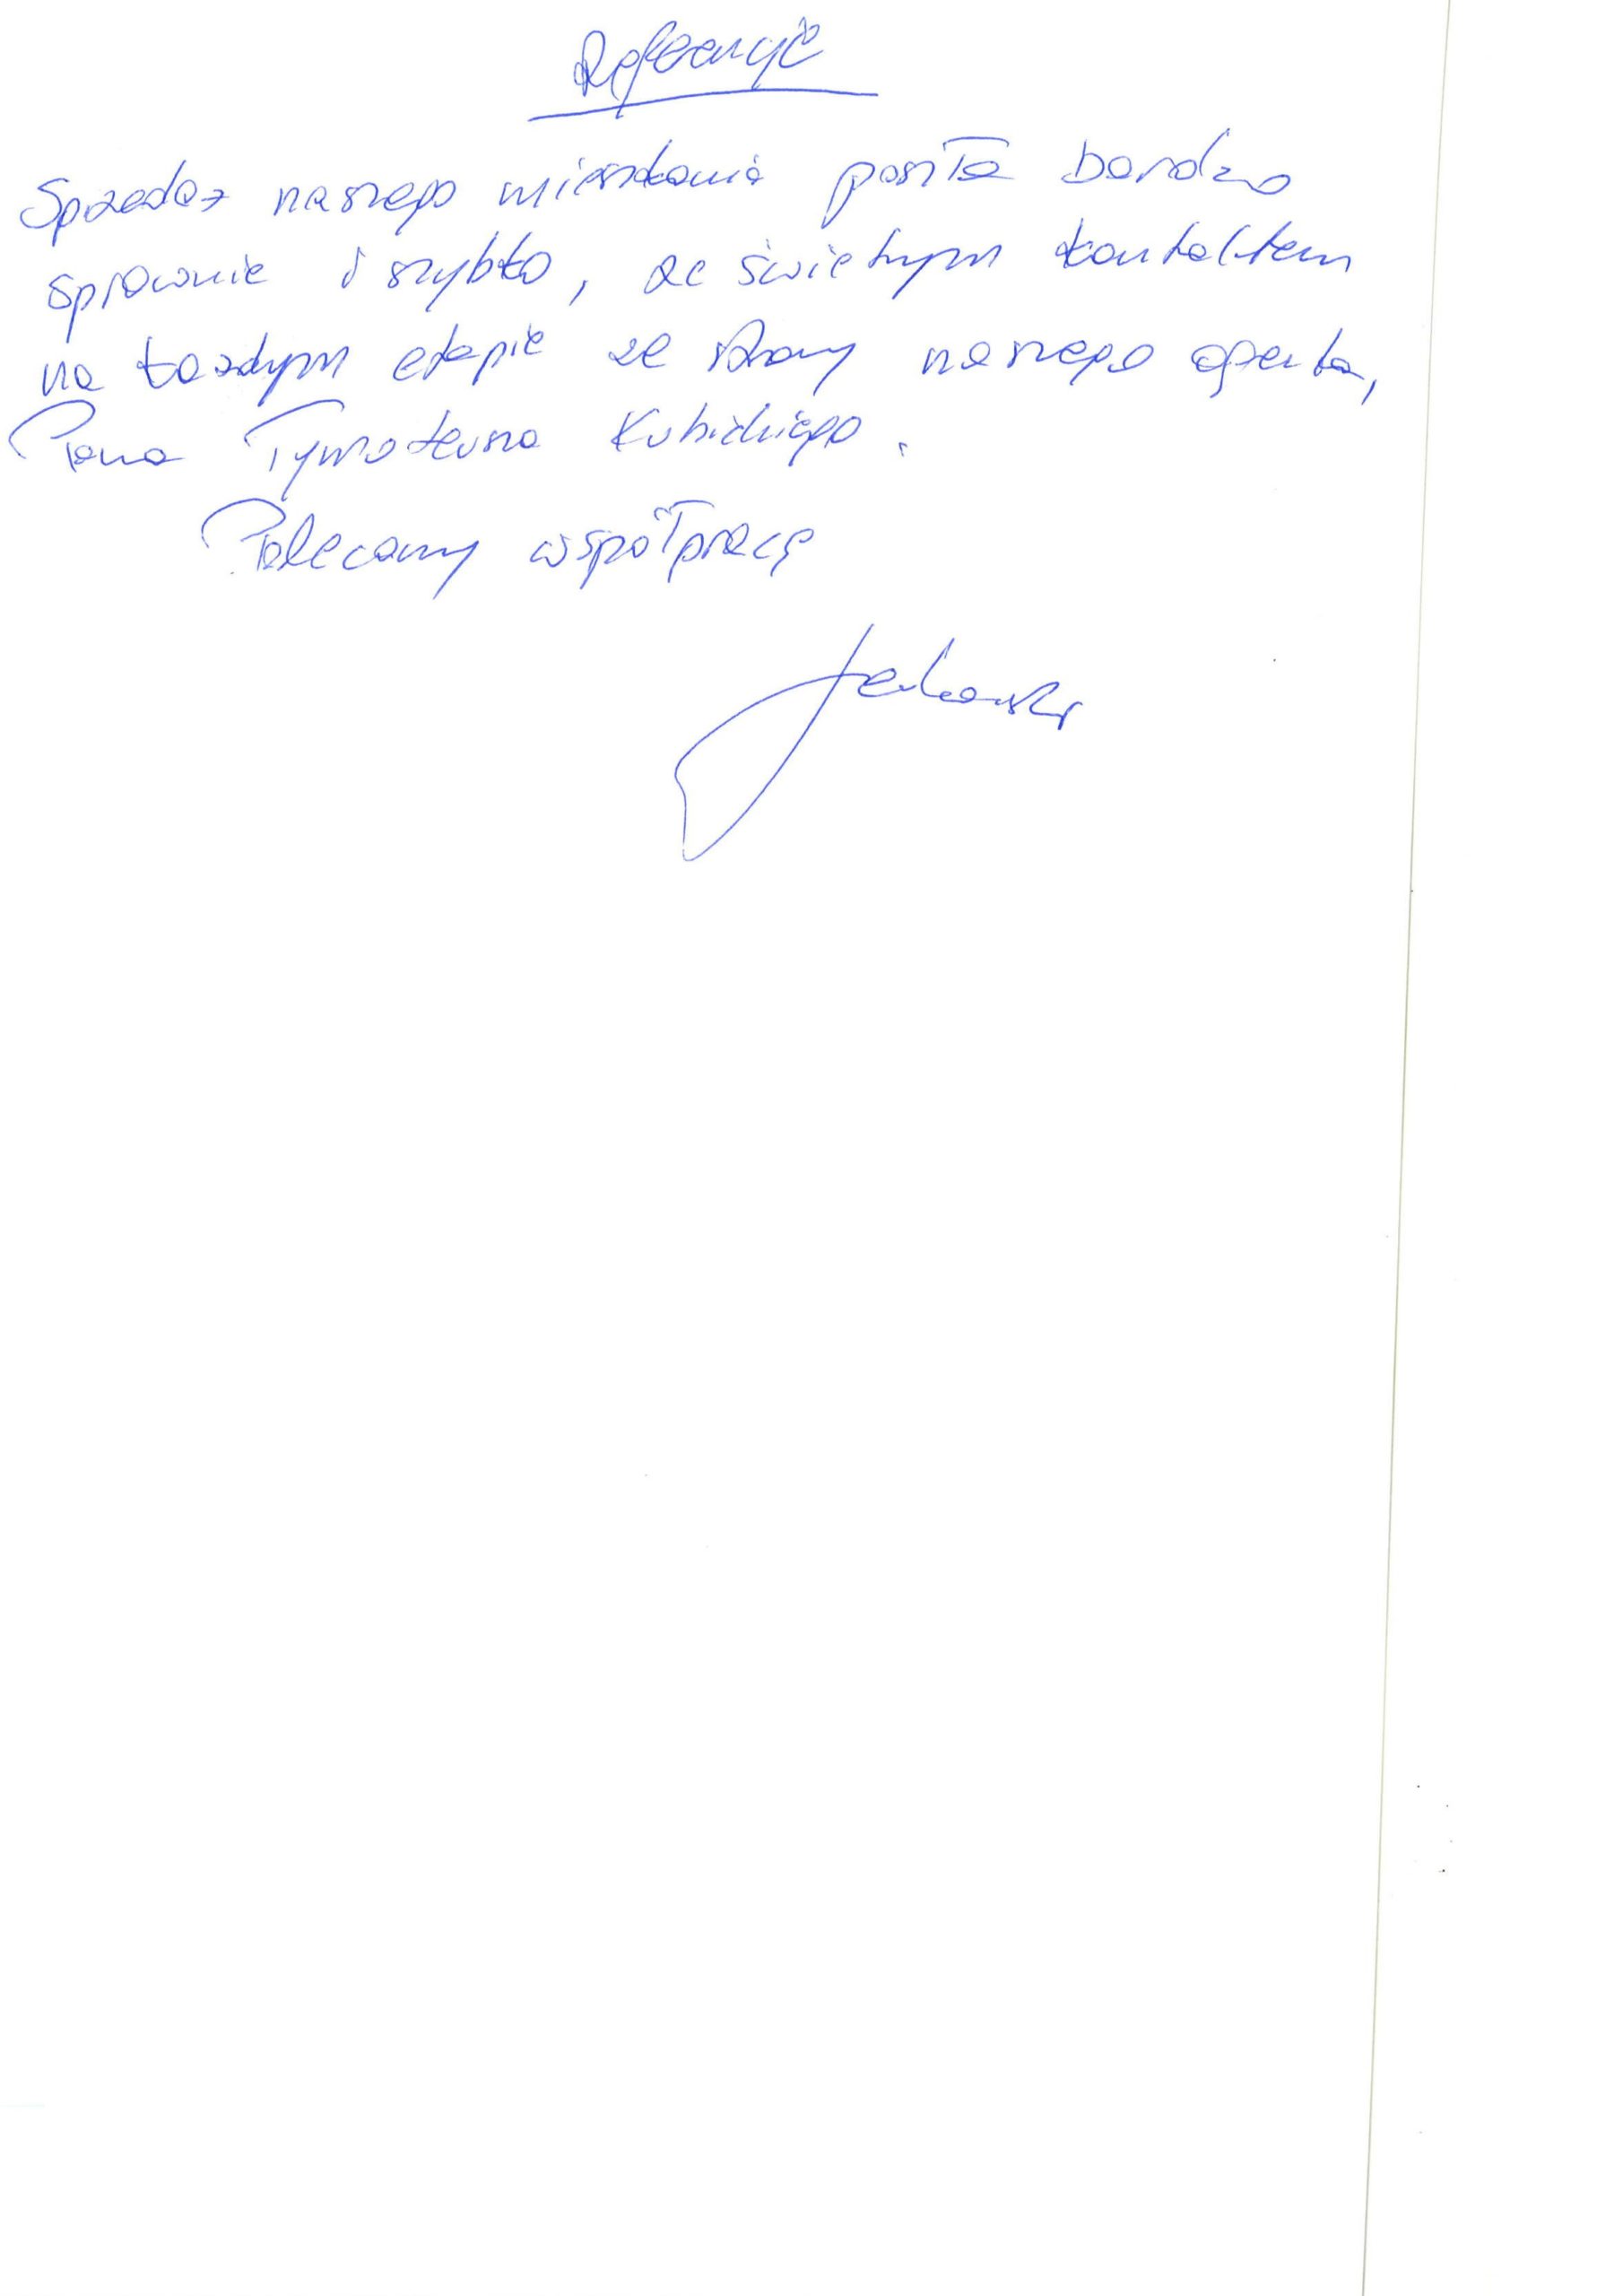 Referencje
Sprzedaż naszego mieszkania poszła bardzo
sprawnie i szybko, ze świetnym kontaktem
na każdym etapie ze strony naszego agenta,
Pana Tymoteusza Kubickiego.
Polecamy współpracę